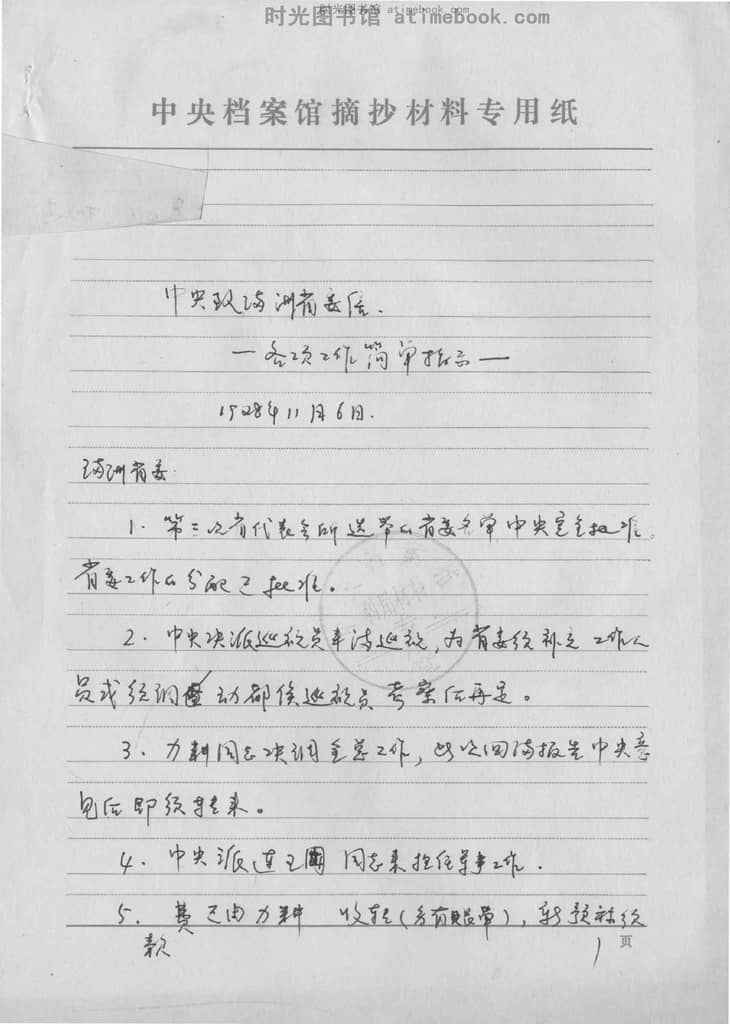 时光图书馆 atimebook.com
时光图书馆 atimebook.com
中央档案馆摘抄材料专用纸
中央致满洲省委信.
—各项工作简单指示—
1928年11月6日.
满洲省委.
1. 第三次省代表会所选举的省委名单中央完全批准。
省委工作的分配已批准。
2. 中央决派巡视员来满巡视,为省委须补充工作人
员或须调动都俟巡视员考察后再定。
3. 力耕同志决调全总工作,此次回满报告中央意
见后即须转来。
4. 中央派连王 同志来担任军事工作.
5. 费已由力耕 收转(另有账单),
款
1 页